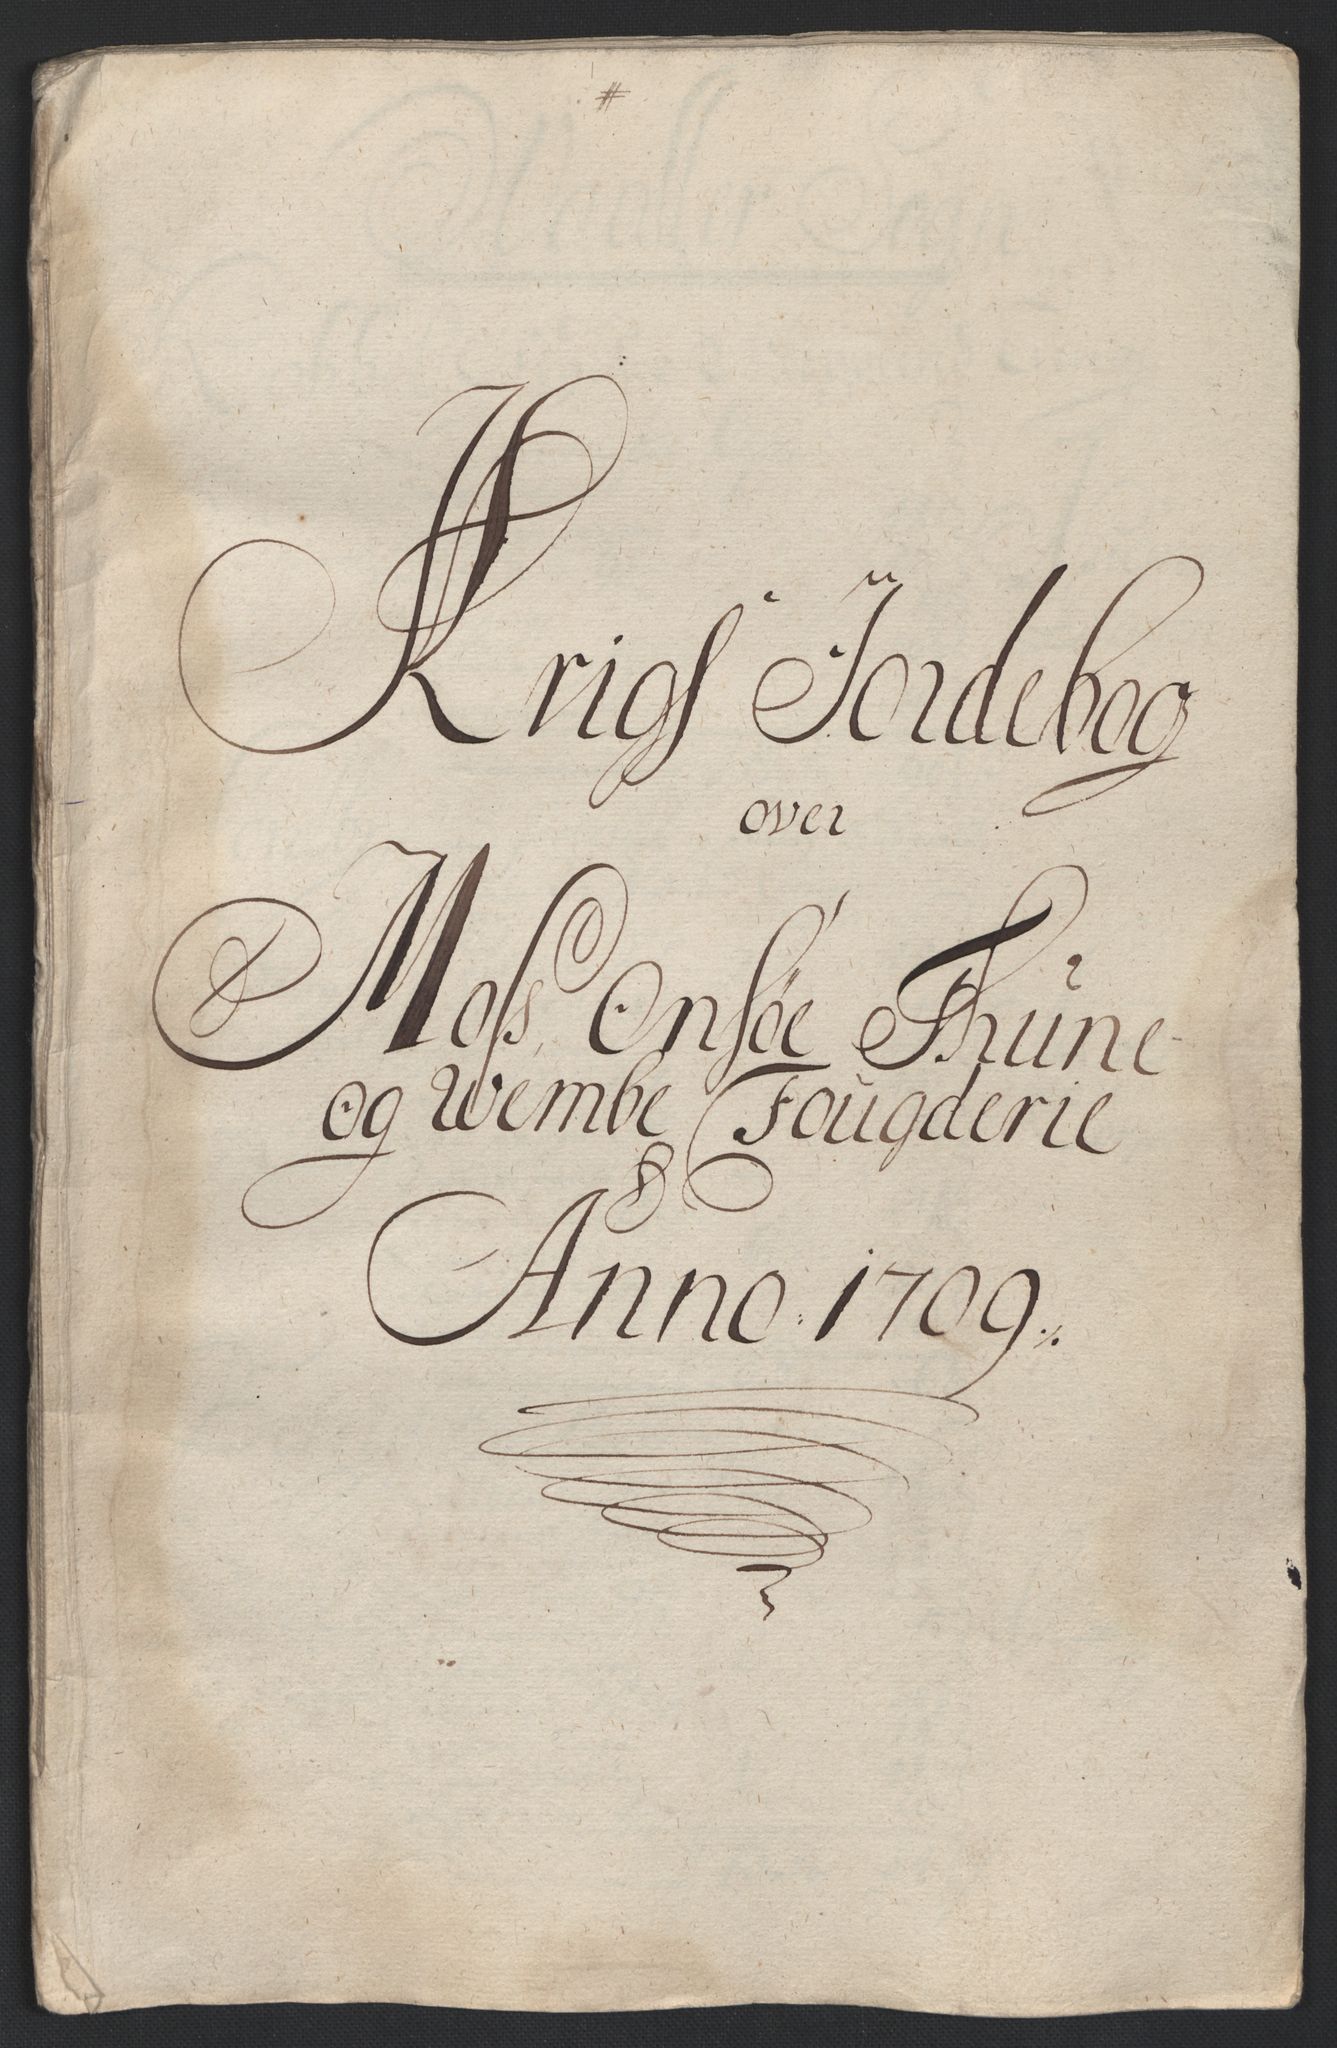 #
Krigs Jordebog
over
Moss, Onsøe Thüne
og Wembe Fougderie
Anno. 1709.